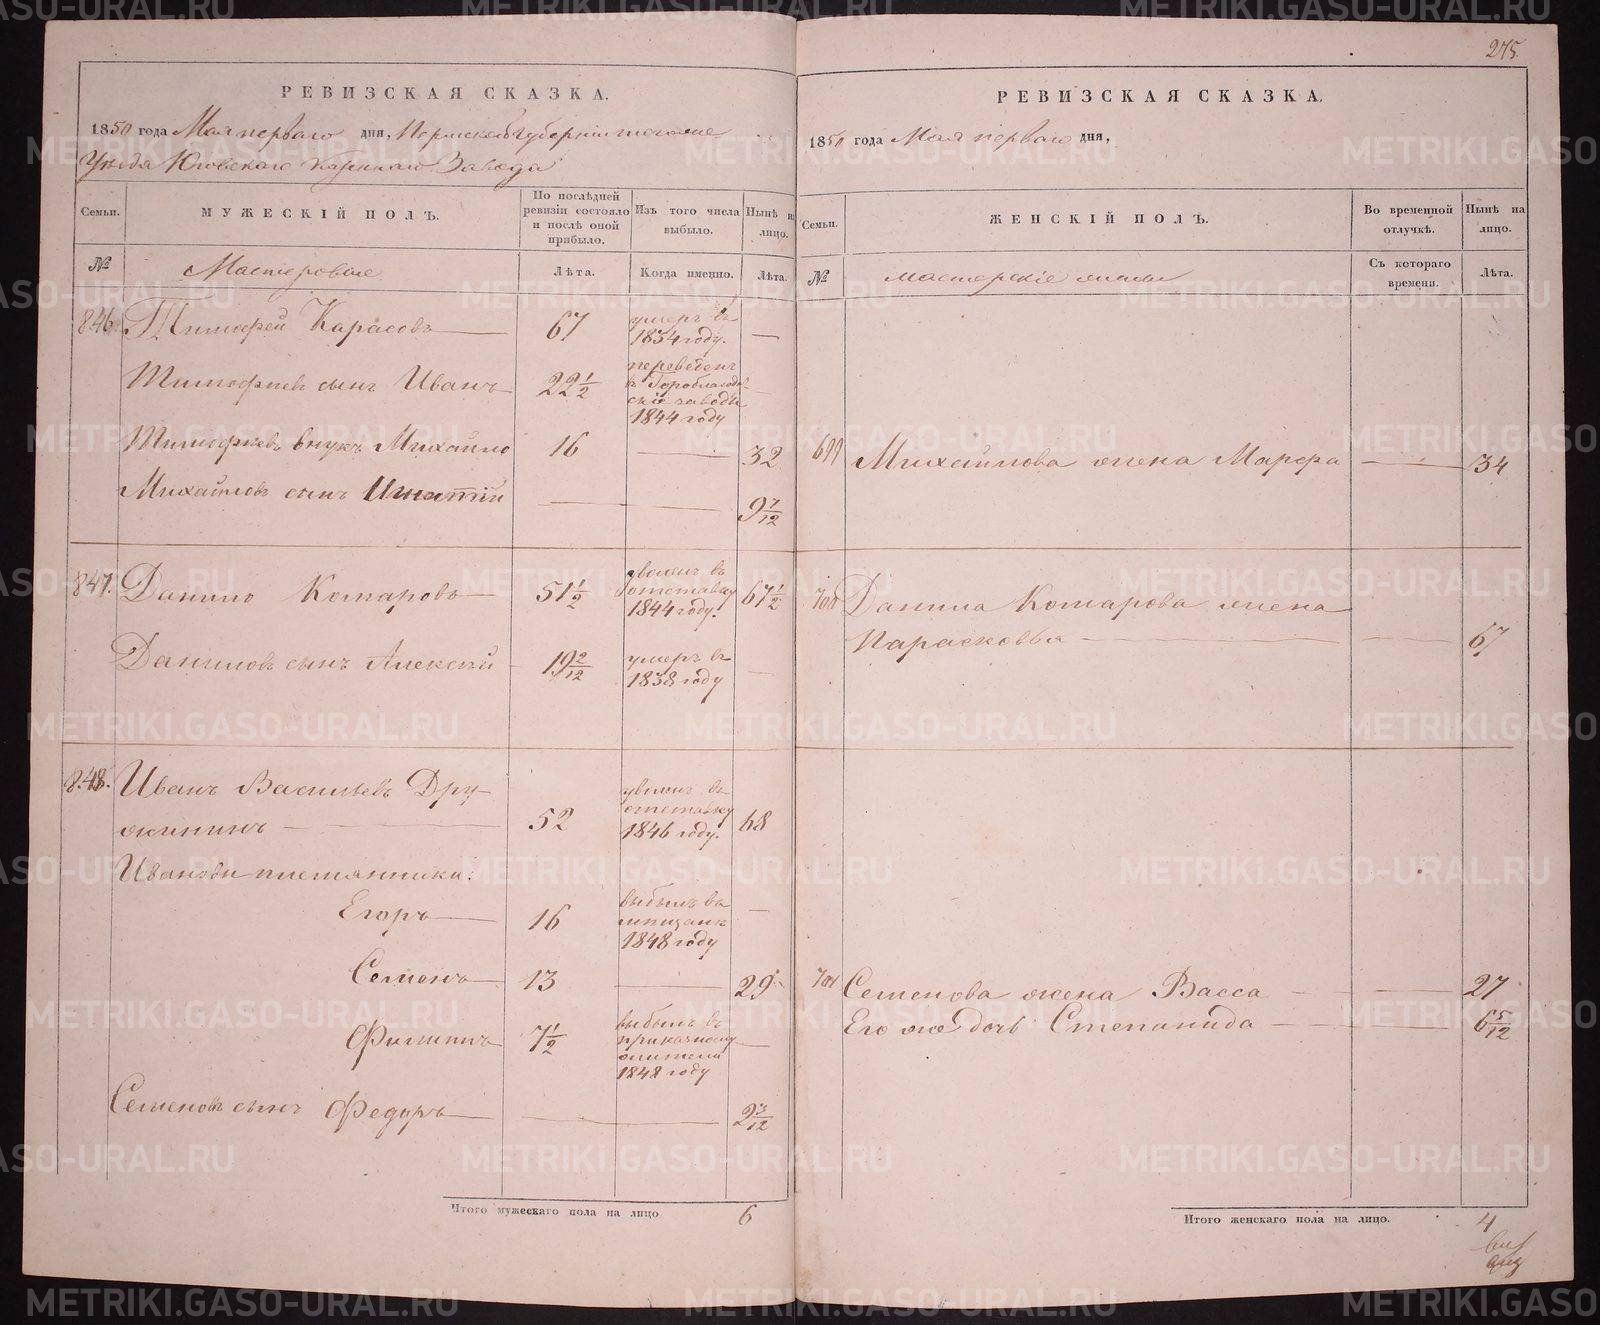 275.
РЕВИЗСКАЯ СКАЗКА.
1850 года Мая перваго дня, Пермской Губернии тогоже
Уезда Юговскаго Казеннаго Завода
Семьи.
МУЖЕСКІЙ ПОЛЪ.
По послѣдней ревизіи состояло и послѣ оной прибыло.
Изъ того числа выбыло.
Нынѣ на лицо.
№
Мастеровые
Лѣта.
Когда именно.
Лѣта.
846. Тимофей Карасовъ 67 умеръ въ 1834 году. —
Тимофѣевъ сынъ Иванъ 22 1/2 переведенъ в Гороблагодатскіе заводы 1844 году
Тимофѣевъ внукъ Михайло 16 — 32
Михайловъ сынъ Игнатій — — 9 7/12
847. Данило Комаровъ 51 1/2 уволенъ въ отставку 1844 году. 67 1/2
Даниловъ сынъ Алексѣй 19 2/12 умеръ въ 1838 году —
848. Иванъ Васильевъ Дру-
жининъ — 52 уволенъ въ отставку 1846 году. 68
Ивановы племянники:
Егоръ 16 выбылъ въ мещане 1848 году —
Семенъ 13 — 29
Филиппъ 7 1/2 выбылъ въ 1848 году —
Семеновъ сынъ Федоръ — — 2 3/12
Итого мужескаго пола на лицо 6
РЕВИЗСКАЯ СКАЗКА.
1850 года Мая перваго дня,
Семьи.
ЖЕНСКІЙ ПОЛЪ.
Во временной отлучкѣ.
Нынѣ на лицо.
№
мастерскіе жены
Съ котораго времени.
Лѣта.
699 Михайлова жена Марфа — 34
700 Данила Комарова жена
Парасковья — — 67
701 Семенова жена Васса — 27
Его же дочь Степанида — 6 5/12
Итого женскаго пола на лицо. 4
METRIKI.GASO-URAL.RU